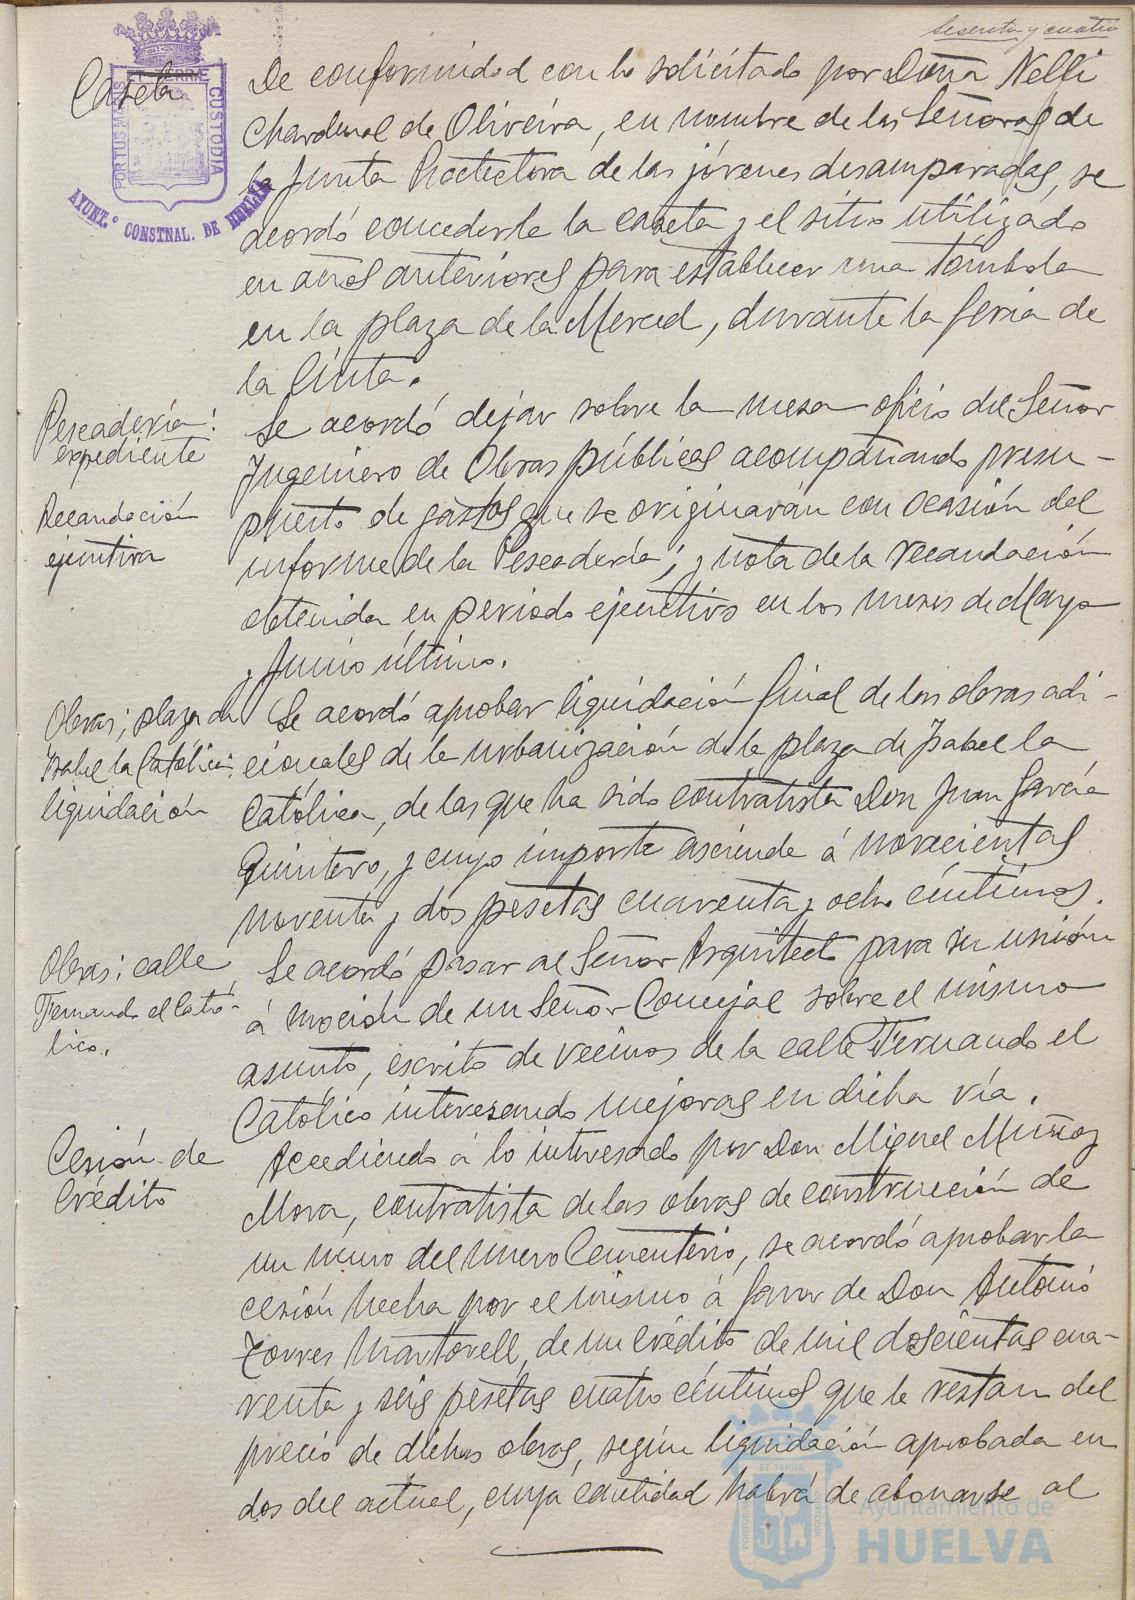 sesenta y cuatro
Caseta
ET TERRÆ
PORTUS MARIS
CUSTODIA
AYUNT.º CONSTNAL. DE HUELVA
De conformidad con lo solicitado por Doña Nelli
Chardenal de Oliveira, en nombre de las Señoras de
la Junta Protectora de las jóvenes desamparadas, se
acordó concederle la caseta y el sitio utilizado
en años anteriores para establecer una tómbola
en la plaza de la Merced, durante la feria de
la Cinta.
Pescadería:
expediente
Recaudación
ejecutiva
Se acordó dejar sobre la mesa oficio del Señor
Ingeniero de Obras públicas acompañando presu-
puesto de gastos que se originarán con ocasión del
informe de la Pescadería; y nota de la recaudación
obtenida en periodo ejecutivo en los meses de Mayo
y Junio último.
Obras; plaza de
Isabel la Católica:
liquidación
Se acordó aprobar liquidación final de las obras adi-
cionales de la urbanización de la plaza de Isabel la
Católica, de las que ha sido contratista Don Juan García
Quintero, y cuyo importe asciende á novecientas
noventa y dos pesetas cuarenta y ocho céntimos.
Obras; calle
Fernando el Cató-
lico.
Se acordó pasar al Señor Arquitecto para su unión
á moción de un Señor Concejal sobre el mismo
asunto, escrito de vecinos de la calle Fernando el
Católico interesando mejoras en dicha vía.
Cesión de
Crédito
Accediendo á lo interesado por Don Miguel Muñoz
Mora, contratista de las obras de construcción de
un muro del nuevo Cementerio, se acordó aprobar la
cesión hecha por el mismo á favor de Don Antonio
Torres Martorell, de un crédito de mil doscientas cua-
renta y seis pesetas cuatro céntimos que le restan del
precio de dichas obras, según liquidación aprobada en
dos del actual, cuya cantidad habrá de abonarse al
Ayuntamiento de
HUELVA